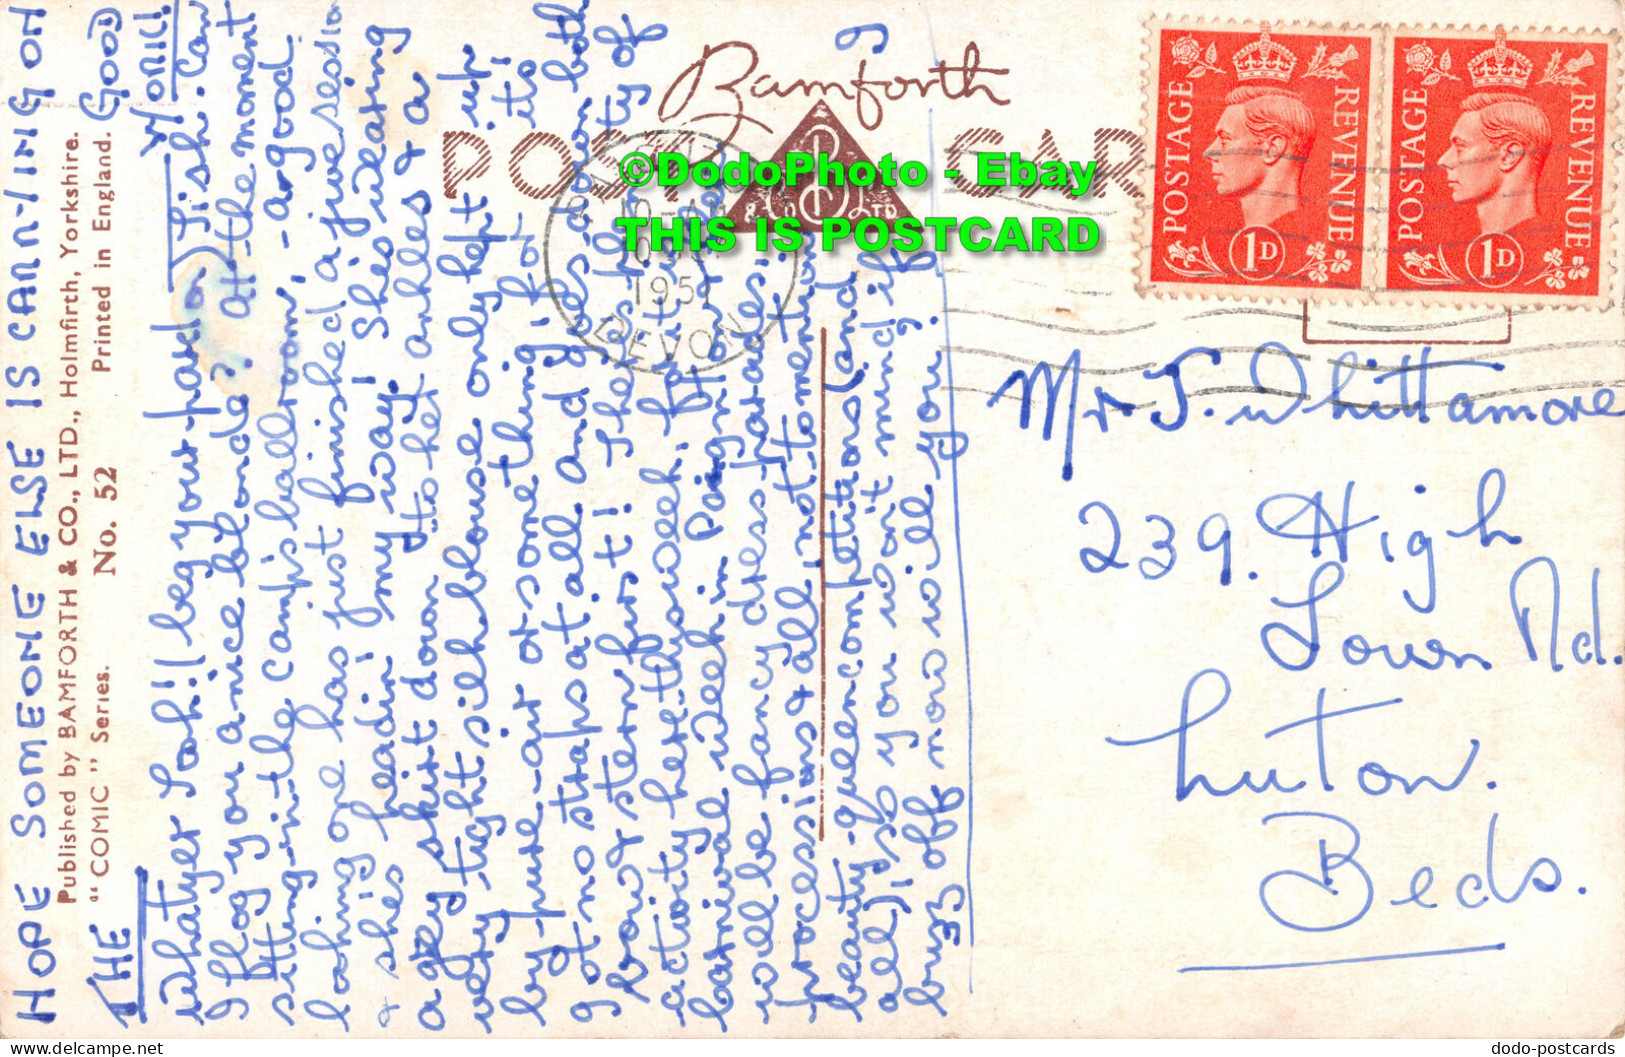 HOPE SOMEONE ELSE IS CARRYING ON
THE GOOD WORK.
Published by BAMFORTH & CO., LTD., Holmfirth, Yorkshire.
"COMIC" Series. No. 52 Printed in England.
Whatyer Sah!! beg your pardon Tish. Can
I flog you a nice blonde? At the moment
sitting in the camp's ballroom,- a good
looking one has just finished a jive session
& she's headin' my way! She's wearing
a grey skirt down to her ankles & a
very tight silk blouse only kept up
by pure air or something, for it's
got no straps at all and goes down both
bow & stern first! There's plenty of
activity here this week, for it's
carnival week in Paignton. There
will be fancy dress parades,
processions & all, not to mention
beauty queen competitions (and
all), so you won't mind if I
buzz off now will you?
Bamforth
POST CARD
& Co LTD
10-AM
1951
DEVON
©DodoPhoto - Ebay
THIS IS POSTCARD
POSTAGE REVENUE
1D
POSTAGE REVENUE
1D
Mr J. Whittamore
239. High
Town Rd.
Luton.
Beds.
www.delcampe.net
dodo-postcards